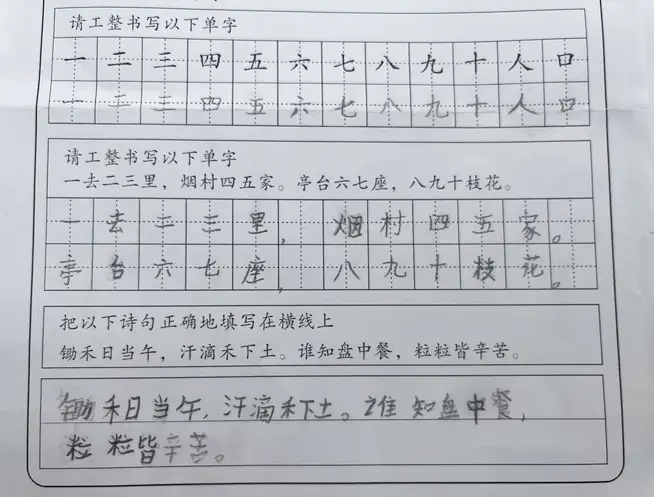 请工整书写以下单字
一二三四五六七八九十人口
一二三四五六七八九十人口
请工整书写以下单字
一去二三里，烟村四五家。亭台六七座，八九十枝花。
一去二三里，烟村四五家。
亭台六七座，八九十枝花。
把以下诗句正确地填写在横线上
锄禾日当午，汗滴禾下土。谁知盘中餐，粒粒皆辛苦。
锄禾日当午，汗滴禾下土。谁知盘中餐，
粒粒皆辛苦。